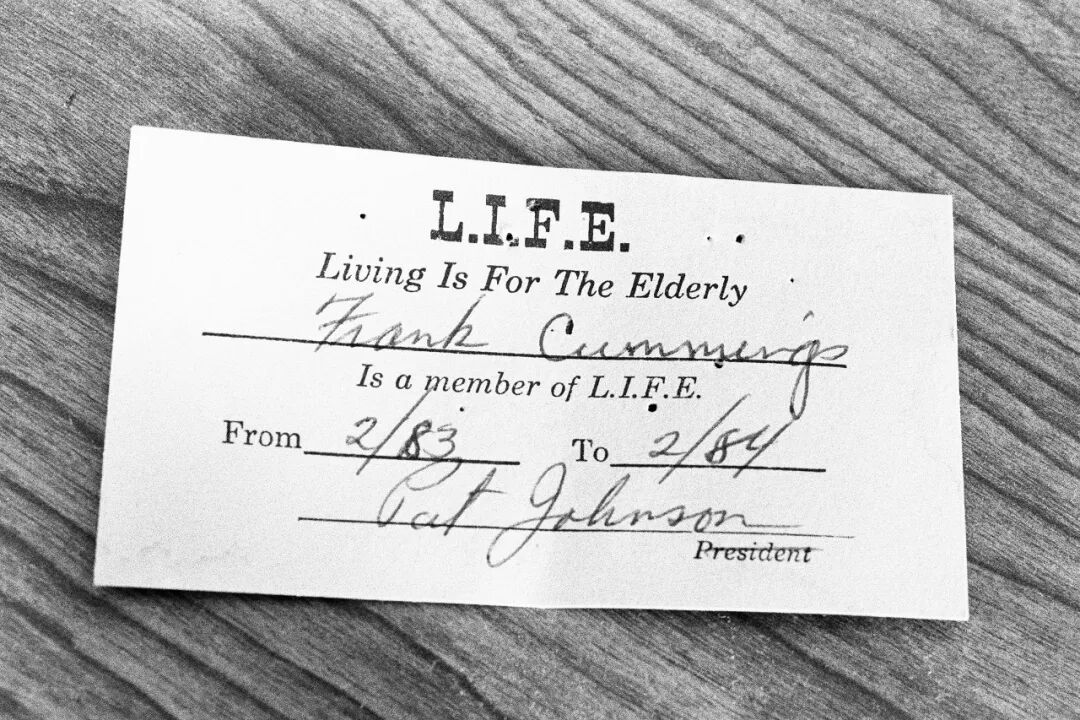 L.I.F.E.
Living Is For The Elderly
Frank Cummings
Is a member of L.I.F.E.
From 2/83 To 2/84
Pat Johnson
President